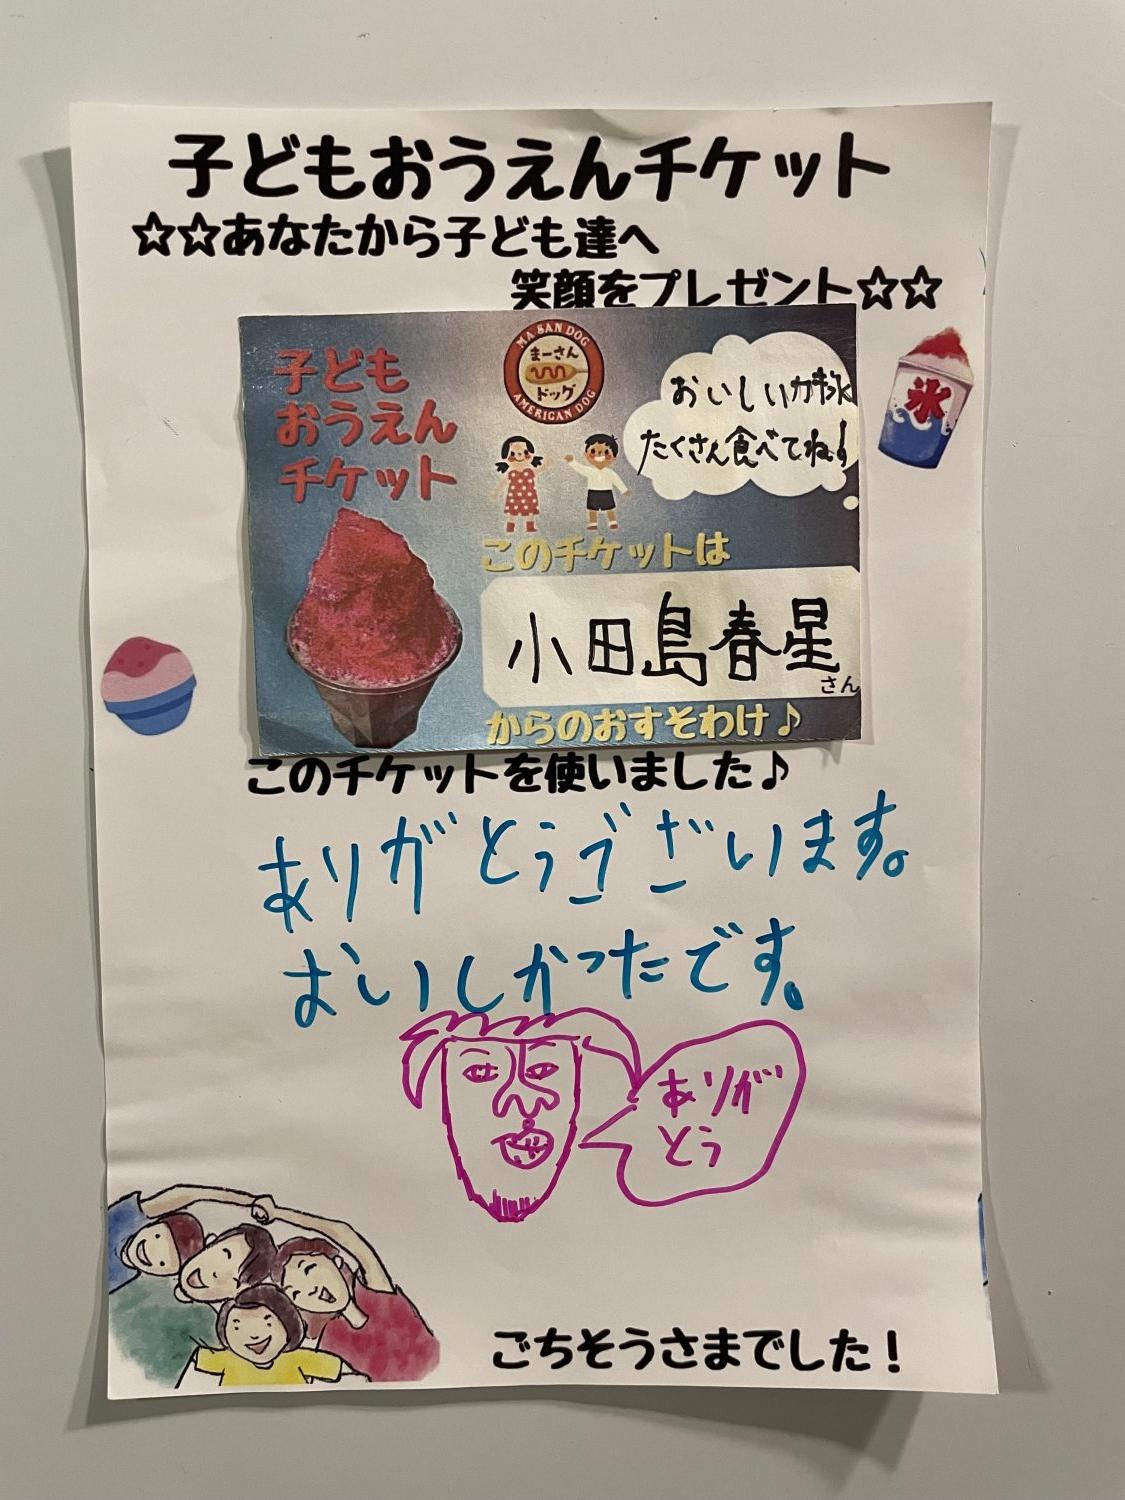 子どもおうえんチケット
☆☆あなたから子ども達へ
笑顔をプレゼント☆☆
氷
子ども
おうえん
チケット
MA SAN DOG
まーさん
ドッグ
AMERICAN DOG
おいしいかき氷
たくさん食べてね!
このチケットは
小田島春星
さん
からのおすそわけ♪
このチケットを使いました♪
ありがとうございます。
おいしかったです。
ありが
とう
ごちそうさまでした!